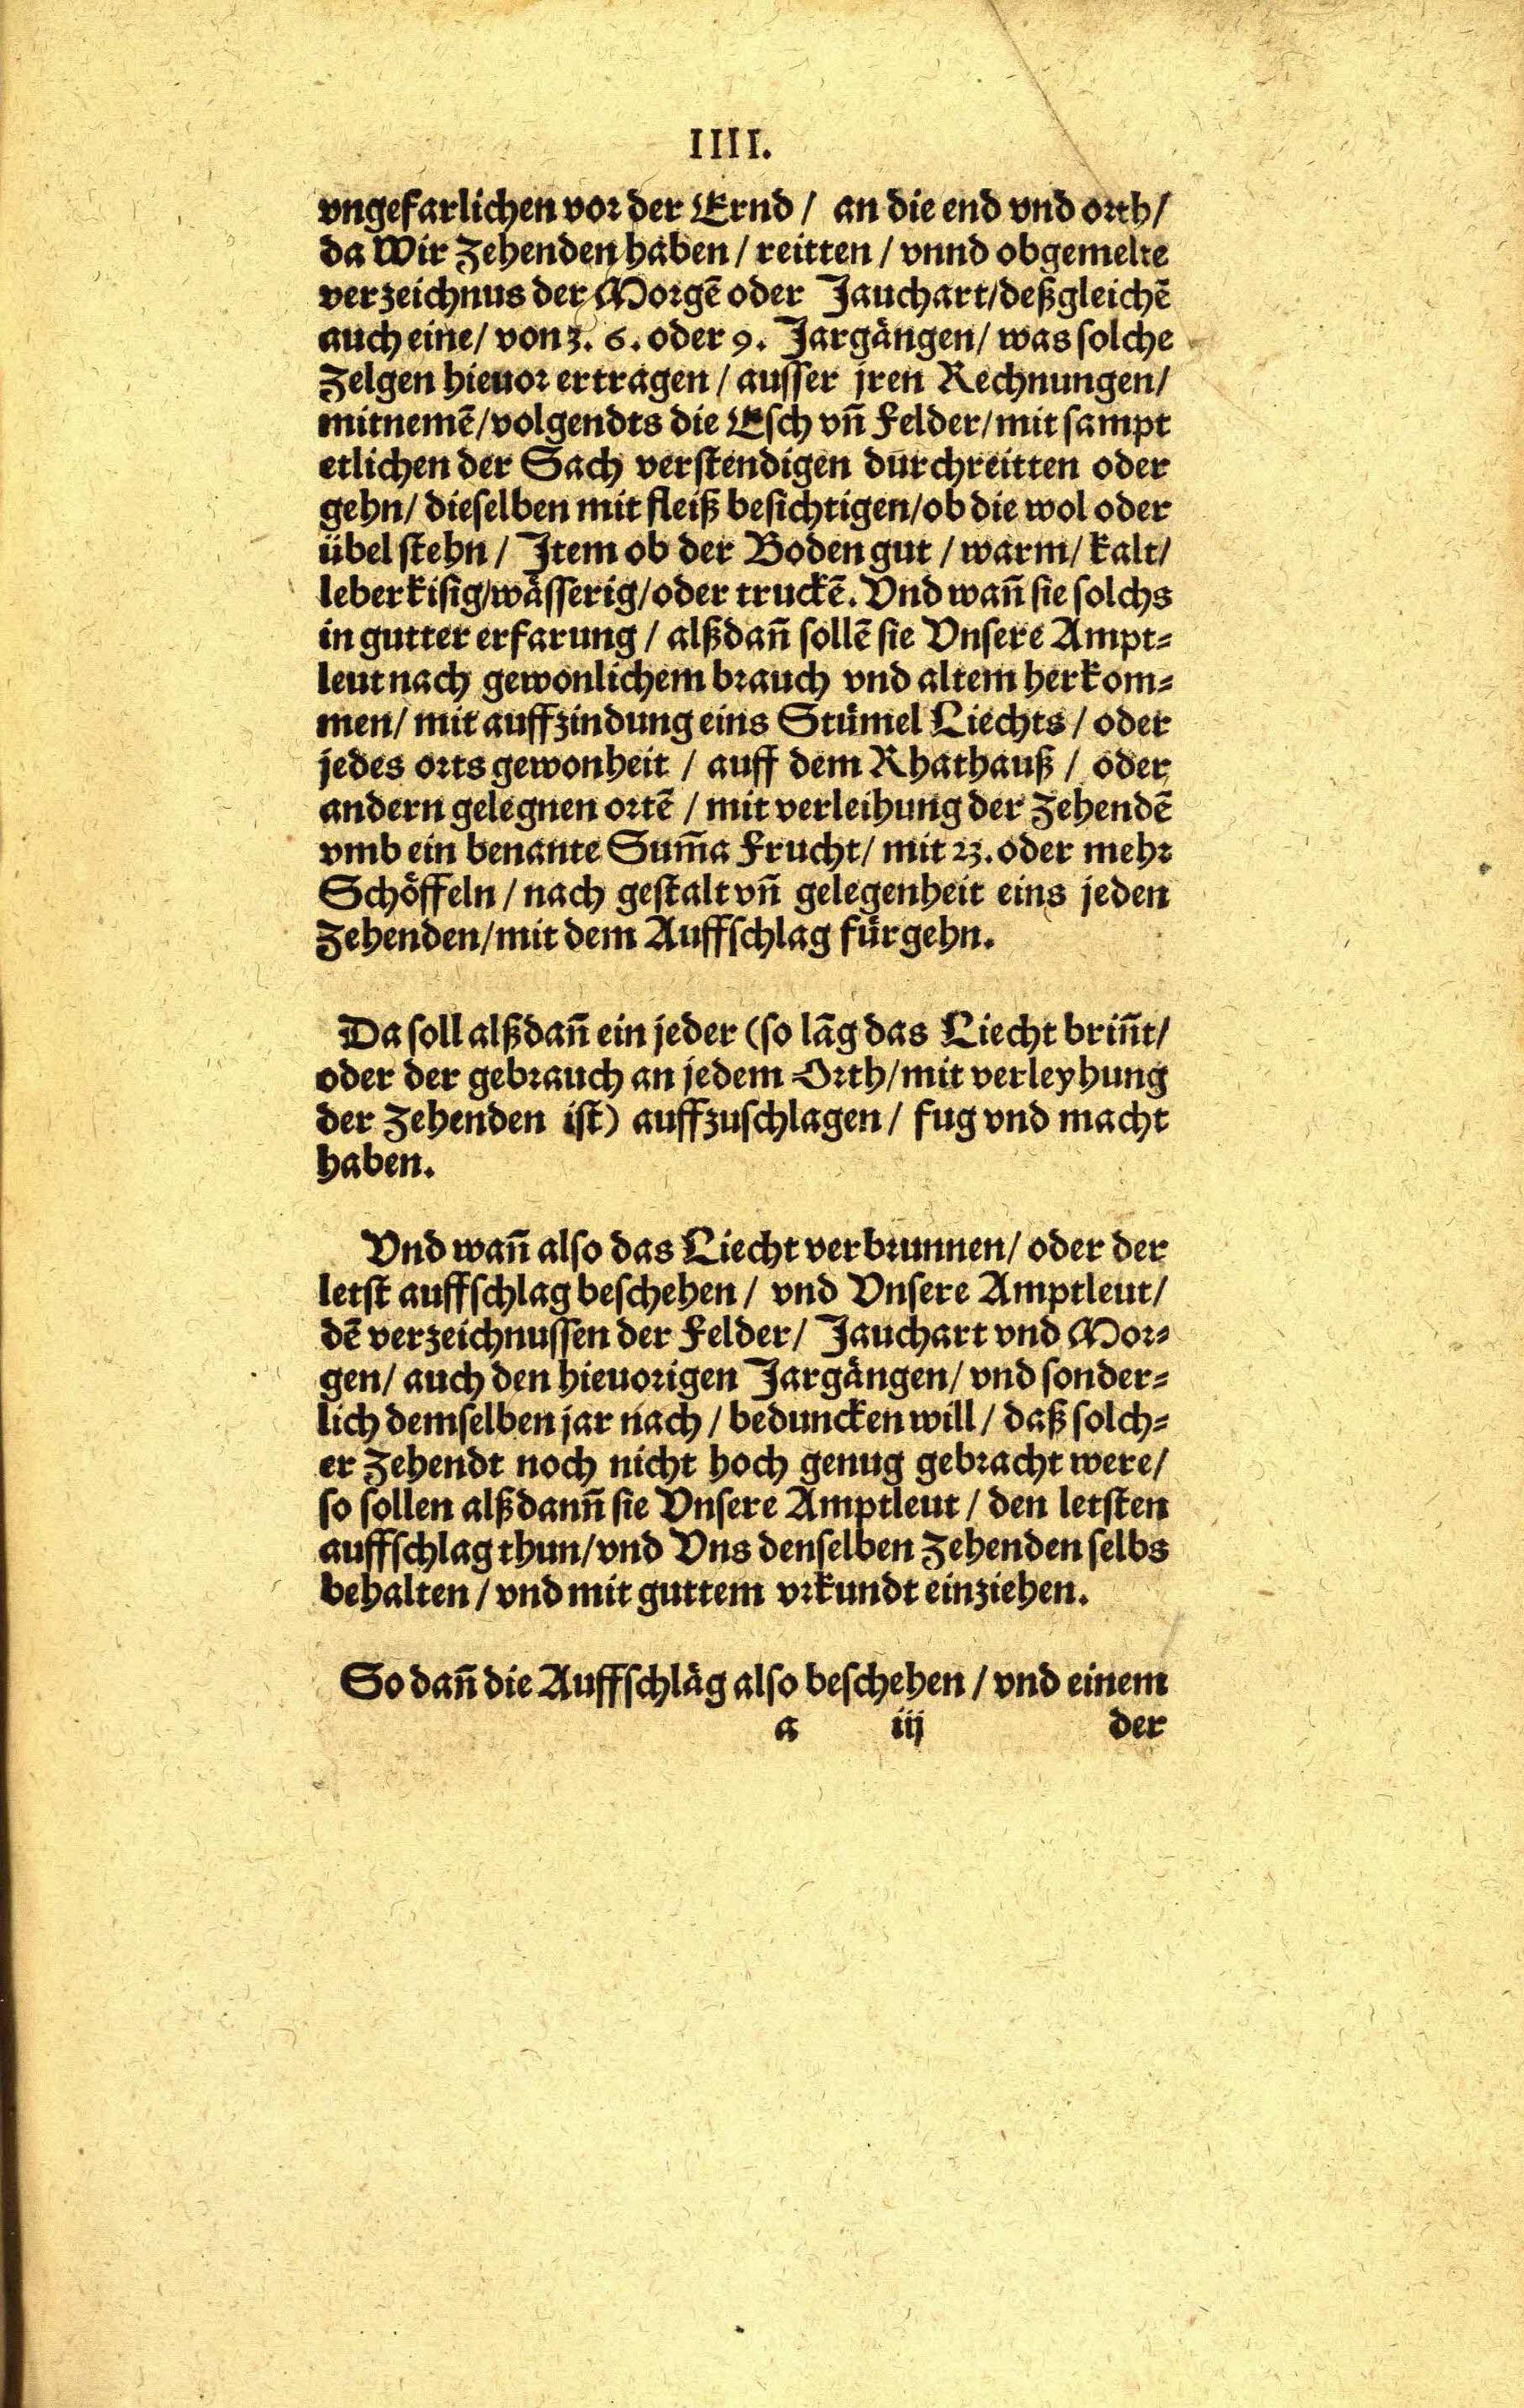 IIII.
vngefarlichen vor der Ernd / an die end vnd orth /
da Wir Zehenden haben / reitten / vnnd obgemelte
verzeichnus der Morgē oder Jauchart / deßgleichē
auch eine / von 3. 6. oder 9. Jargängen / was solche
Zelgen hieuor ertragen / ausser jren Rechnungen /
mitnemē / volgendts die Esch vñ Felder / mit sampt
etlichen der Sach verstendigen durchreitten oder
gehn / dieselben mit fleiß besichtigen / ob die wol oder
übel stehn / Jtem ob der Boden gut / warm / kalt /
leberkisig / wässerig / oder truckē. Vnd wañ sie solchs
in gutter erfarung / alßdañ sollē sie Vnsere Ampt⸗
leut nach gewonlichem brauch vnd altem herkom⸗
men / mit auffzindung eins Stümel Liechts / oder
jedes orts gewonheit / auff dem Rhathauß / oder
andern gelegnen ortē / mit verleihung der Zehendē
vmb ein benante Sum̄a Frucht / mit 23. oder mehr
Schöffeln / nach gestalt vñ gelegenheit eins jeden
Zehenden / mit dem Auffschlag fürgehn.
Da soll alßdañ ein jeder (so lāg das Liecht briñt /
oder der gebrauch an jedem Orth / mit verleyhung
der Zehenden ist) auffzuschlagen / fug vnd macht
haben.
Vnd wañ also das Liecht verbrunnen / oder der
letst auffschlag beschehen / vnd Vnsere Amptleut /
dē verzeichnussen der Felder / Jauchart vnd Mor⸗
gen / auch den hieuorigen Jargängen / vnd sonder⸗
lich demselben jar nach / beduncken will / daß solch⸗
er Zehendt noch nicht hoch genug gebracht were /
so sollen alßdanñ sie Vnsere Amptleut / den letsten
auffschlag thun / vnd Vns denselben Zehenden selbs
behalten / vnd mit guttem vrkundt einziehen.
So dañ die Auffschläg also beschehen / vnd einem
a iij der